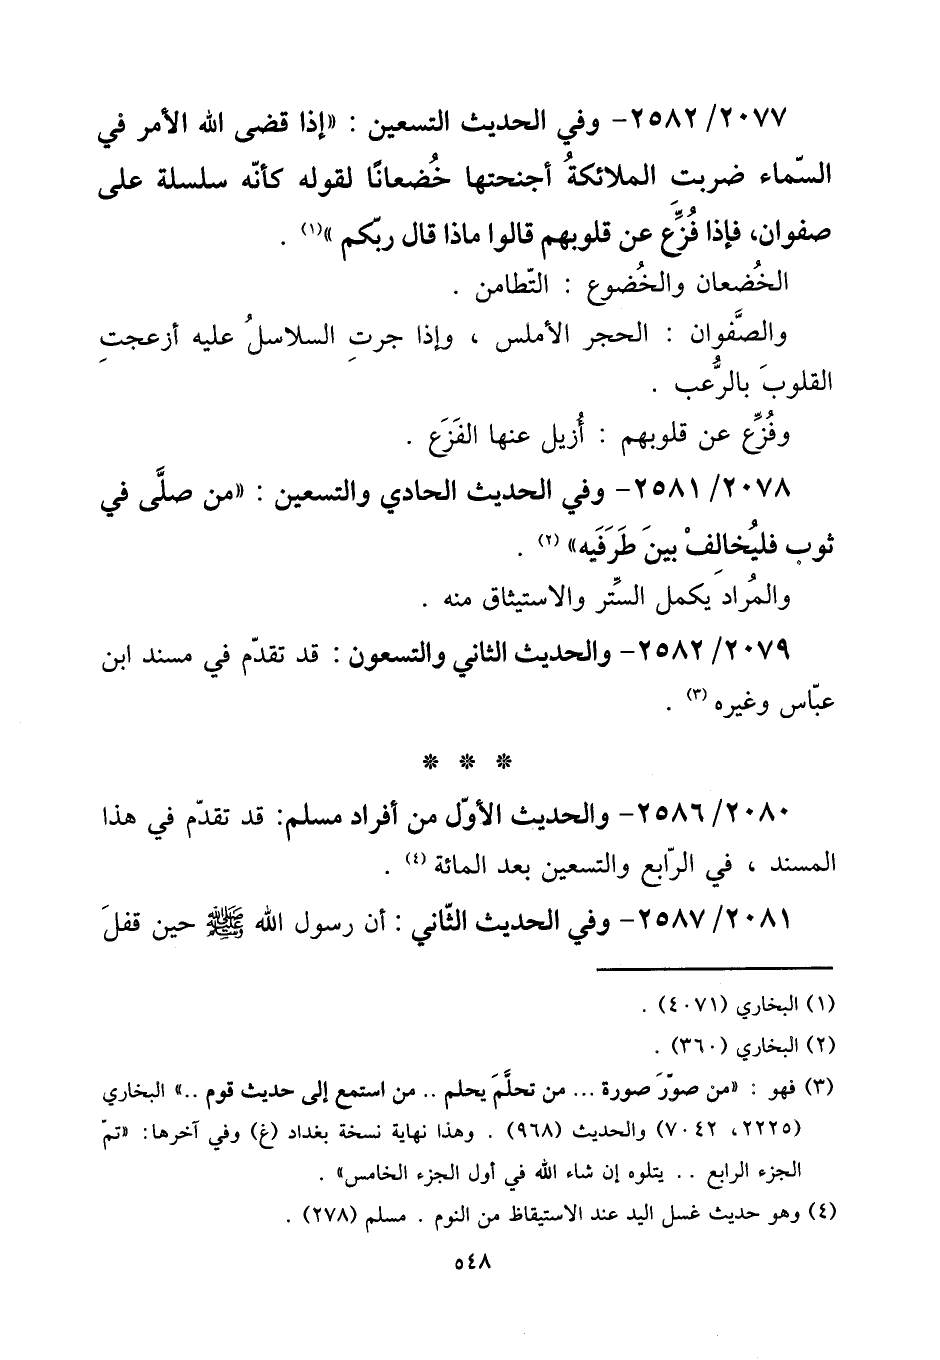 ٢٠٧٧/ ٢٥٨٢- وفي الحديث التسعين : «إذا قضى الله الأمر في
السّماء ضربت الملائكةُ أجنحتها خُضعانًا لقوله كأنّه سلسلة على
صفوان، فإذا فُزِّع عن قلوبهم قالوا ماذا قال ربّكم »(١) .
الخُضعان والخُضوع : التّطامن .
والصَّفوان : الحجر الأملس ، وإذا جرتِ السلاسلُ عليه أزعجتِ
القلوبَ بالرُّعب .
وفُزِّع عن قلوبهم : أُزيل عنها الفَزَع .
٢٠٧٨/ ٢٥٨١- وفي الحديث الحادي والتسعين : «من صلَّى في
ثوبٍ فليُخالِفْ بينَ طَرَفَيه» (٢) .
والمُراد يكمل السِّتر والاستيثاق منه .
٢٠٧٩/ ٢٥٨٢- والحديث الثاني والتسعون : قد تقدّم في مسند ابن
عبّاس وغيره (٣) .
* * *
٢٠٨٠/ ٢٥٨٦- والحديث الأوّل من أفراد مسلم: قد تقدّم في هذا
المسند ، في الرّابع والتسعين بعد المائة (٤) .
٢٠٨١/ ٢٥٨٧- وفي الحديث الثّاني : أن رسول الله ﷺ حين قفلَ
(١) البخاري (٤٠٧١) .
(٢) البخاري (٣٦٠) .
(٣) فهو : «من صوّرَ صورة ... من تحلَّمَ يحلم .. من استمع إلى حديث قوم ..» البخاري
(٢٢٢٥، ٧٠٤٢) والحديث (٩٦٨) . وهذا نهاية نسخة بغداد (غ) وفي آخرها: «تمّ
الجزء الرابع .. يتلوه إن شاء الله في أول الجزء الخامس» .
(٤) وهو حديث غسل اليد عند الاستيقاظ من النوم . مسلم (٢٧٨) .
٥٤٨